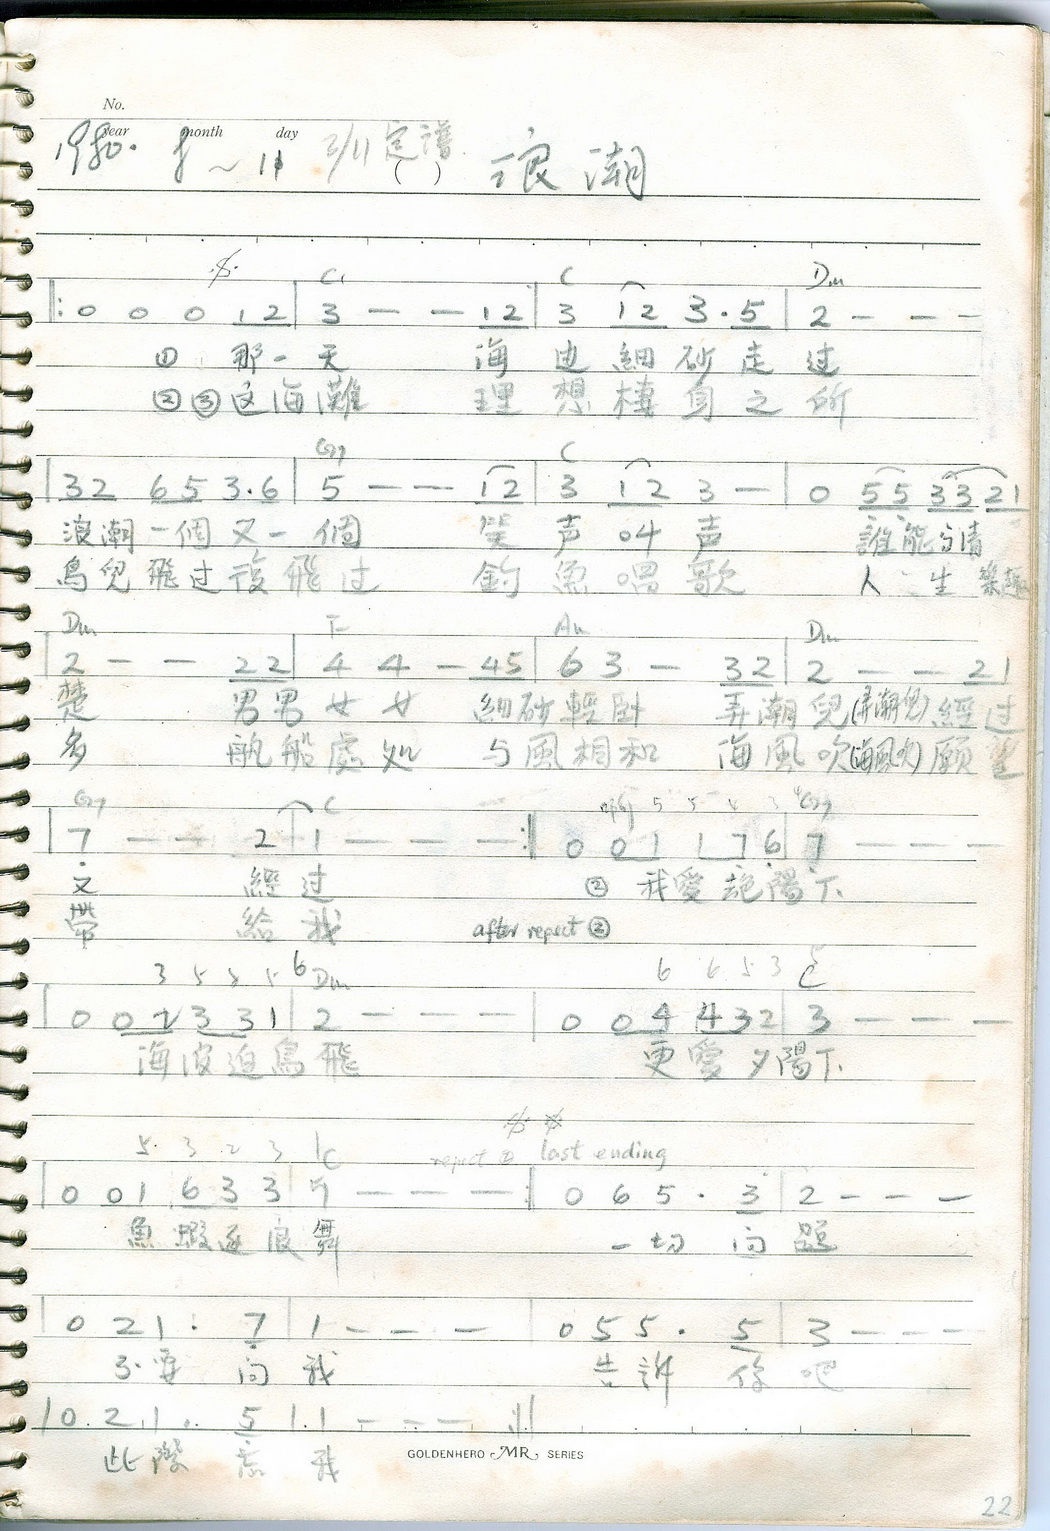 No.
year month day
1980. 8 ~ 11 3/11 定譜 ( ) 浪潮
C C Dm
|: 0 0 0 12 | 3 — — 12 | 3 12 3·5 | 2 — — —
① 那一天 海边細砂走过
②③这海灘 理想棲身之所
G7 C
| 32 65 3·6 | 5 — — 12 | 3 12 3 — | 0 55 33 21
浪潮一個又一個 笑声叫声 誰能 清
鳥兒飛过復飛过 釣魚唱歌 人生樂趣
Dm F Am Dm
2 — — 22 | 4 4 — 45 | 6 3 — 32 | 2 — — 21
楚 男男女女 細砂輕卧 弄潮兒(弄潮兒)經过
多 帆船處処 与風相和 海風吹(海風吹)願望
G7 C 5 5 4 3 G7
| 7 — — 2 | 1 — — — :| 0 01 176 | 7 — — —
又 經过 ② 我愛 陽下
帶 給我 after repeat ②
3 5 5 5 6 Dm 6 6 5 3 C
0 02 331 | 2 — — — | 0 04 432 | 3 — — —
海波迫鳥飛 更愛夕陽下
5 3 2 3 1 C repeat ② last ending
0 01 633 | 5 — — — :| 0 6 5 · 3 | 2 — — —
魚蝦逐浪舞 一切问题
0 2 1 · 7 | 1 — — — | 0 5 5 · 5 | 3 — — —
不要问我 告訴你吧
| 0 2 1 · 5 | 1 — — — ||
此際 我
GOLDENHERO MR SERIES
22